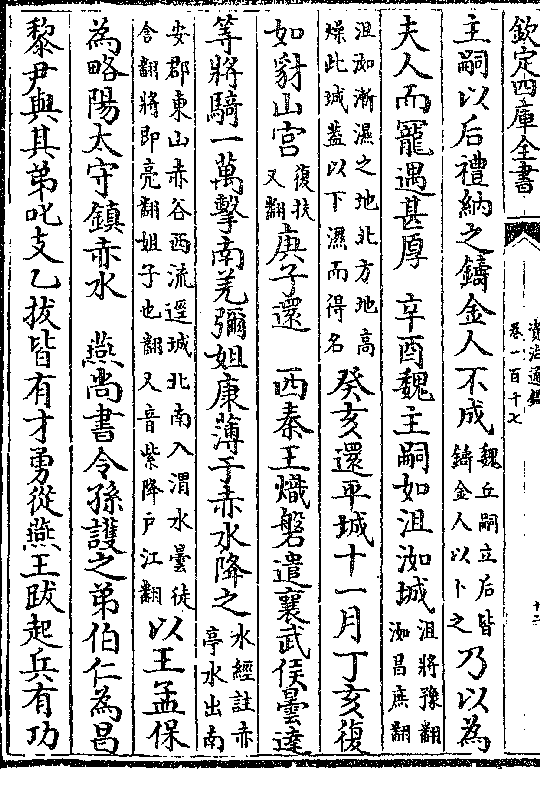 欽定四庫全書
資治通鑑
卷一百十七
十二
主嗣以后禮納之鑄金人不成魏丘嗣立后皆鑄金人以卜之乃以為
夫人而寵遇甚厚　辛酉魏主嗣如沮洳城沮將豫翻洳昌庶翻
沮洳漸濕之地北方地高燥此城蓋以下濕而得名癸亥還平城十一月丁亥復
如豺山宮復扶又翻庚子還　西秦王熾磐遣襄武侯曇達
等將騎一萬擊南羌彌姐康薄于赤水降之水經註赤亭水出南
安郡東山赤谷西流逕城北南入渭水曇徒含翻將即亮翻姐子也翻又音紫降戸江翻以王孟保
為略陽太守鎮赤水　燕尚書令孫護之弟伯仁為昌
黎尹與其弟叱支乙拔皆有才勇從燕王跋起兵有功